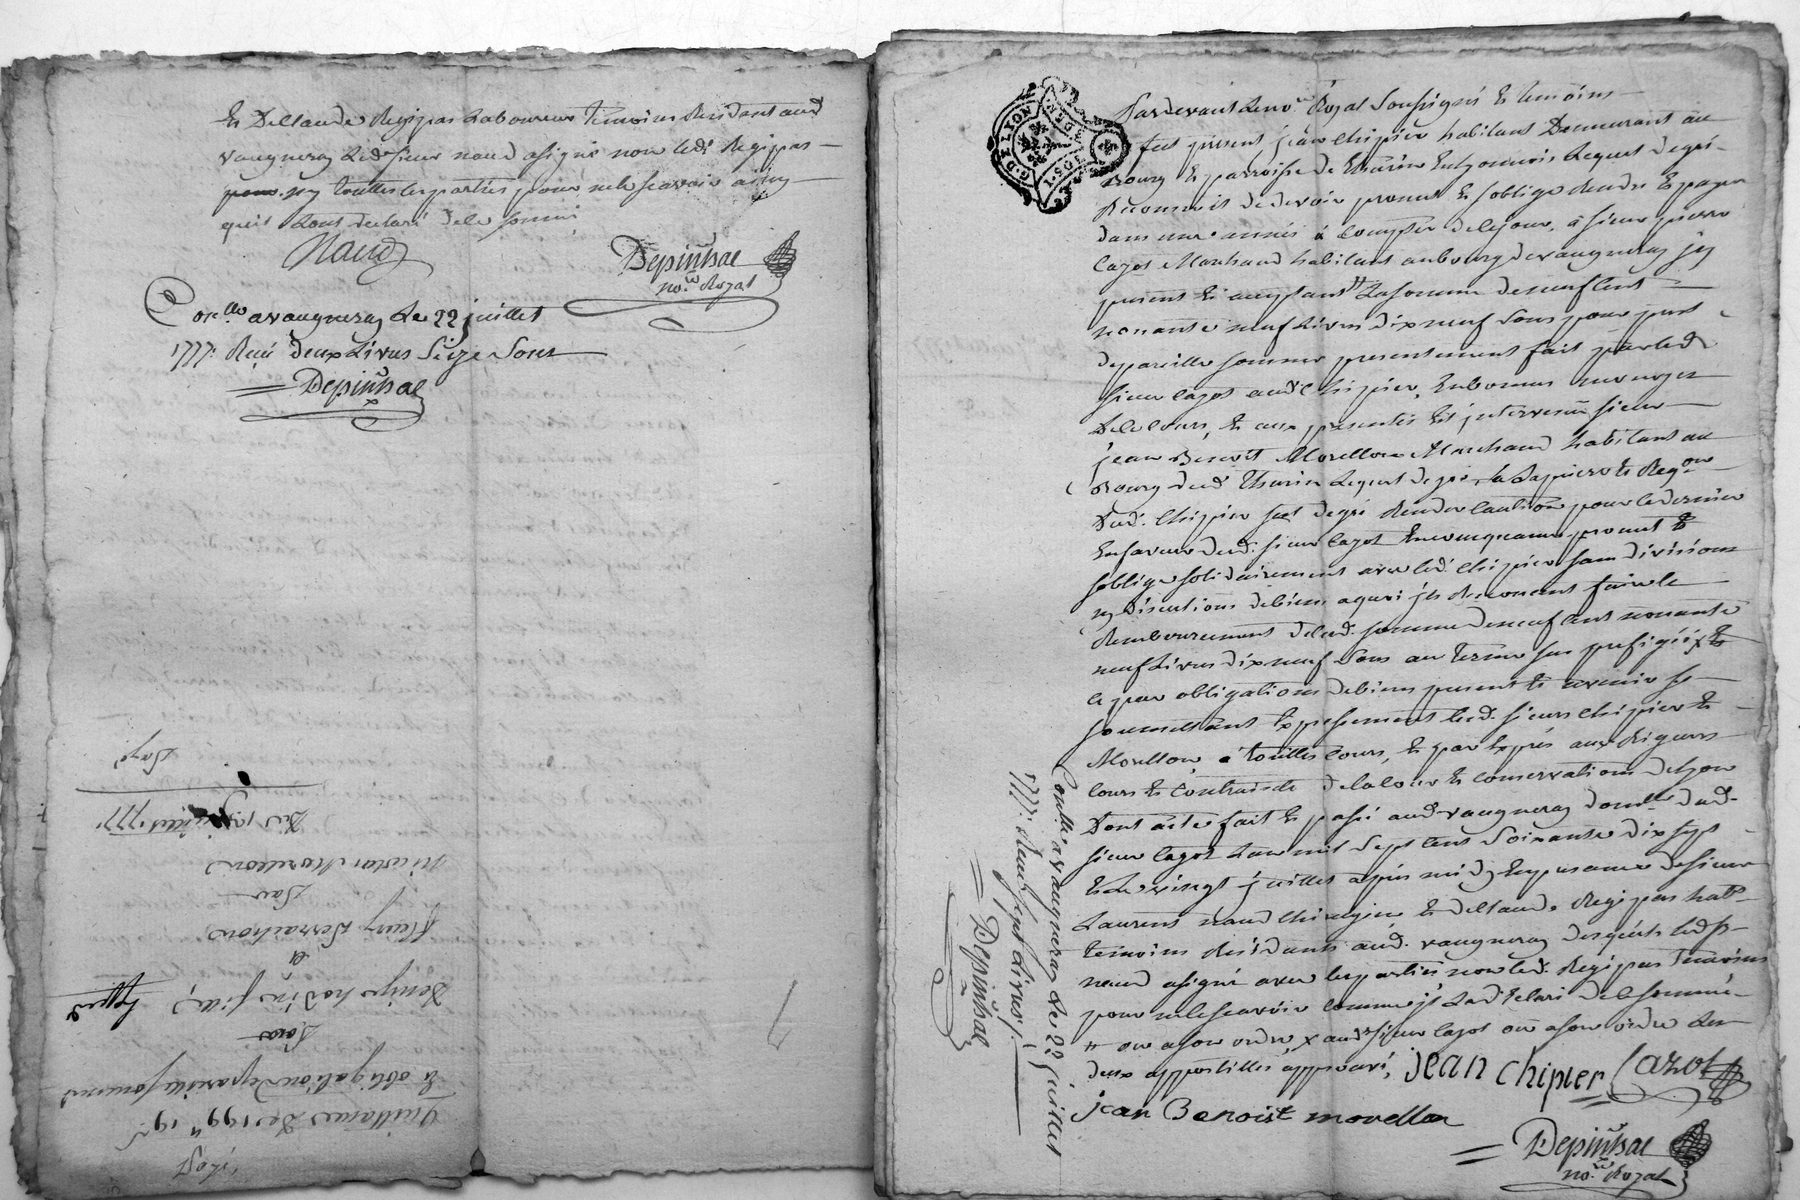 Et Dellande Regipas Laboureur temoins Residant aud
vaugneray Led. sieur naud asigné non led. Regipas
ny touttes les parties pour ne le scavoir ainsy
quil Lont declaré de ce sommé
Naud
Depinhac
no.re Royal
Con.lle a vaugneray Le 22 juillet
1777. Reçu deux Livres Seize Sous
Depinhac
Quittance De 199# 19s
Et obligation de pareille somme
Pour
Et
Par
Du 19e juillet 1777.
Payé
G. DE LYON
Pardevant Le no.re Royal Soussigné Et temoins
fut present jean Chipier habitant Demeurant au
Bourg Et parroisse de Thurin En Lyonnois Lequel de gré
Reconnoit de devoir promet Et soblige Rendre Et payer
dans une année à Compter de ce jour, à sieur pierre
Cazot Marchand habitant au bourg de vaugneray jcy
present Et acceptant # La somme de neuf Cent
nonante neuf Livres dix neuf Sous pour prest
de pareille somme presentement fait par led.
sieur Cazot aud. Chipier, En bonnes
De Cours, Et aux presentes Est jntervenu sieur
jean Benoit Morellon Marchand habitant au
Bourg dud. Thurin Lequel de gré, à La priere Et Req.on
Dud. Chipier s'est de gré Rendu Caution pour ce dernier
En faveur dud. sieur Cazot En consequence promet Et
soblige solidairement avec led. Chipier sans division
ny discution de biens a quoi jls Renoncent faire le
Remboursement de lad. somme de neuf Cent nonante
neuf Livres dix neuf Sous au terme sus prefigé x Et
ce par obligation de biens presents Et avenir se
soumettant Expressement led. sieurs Chipier Et
Morellon à touttes Cours, Et par Exprés aux Rigueurs
Cours Et Contrainte de la Cour Et Conservation de Lyon
Dont acte fait Et passé aud. vaugneray domlle dud.
sieur Cazot Lan mil Sept Cent Soixante dix Sept
Et Le vingt juillet aprés midy En presence de sieur
Laurent naud Chirurgien Et dellande Regipas hab.
temoins Residants aud. vaugneray Lesquels led. s.
naud asigné avec les parties non led. Regipas temoins
pour ne le scavoir comme jl La declaré de ce sommé
# ou a son ordre x aud. sieur Cazot ou a son ordre Les
deux appostilles approuvé,
jean Chipier Cazot
jean Benoist morellon
Depinhac
no.re Royal
Con.lle a vaugneray Le 22 juillet
1777. Reçu Sept Livres
Depinhac